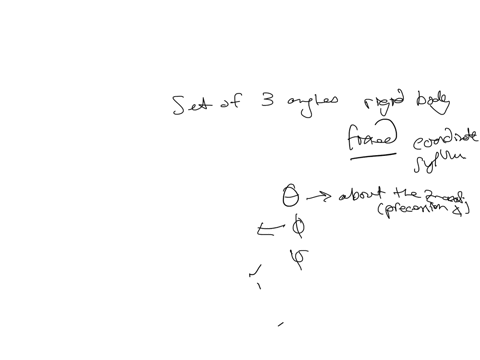 Set of 3 angles rigid body
frame coordinate
system
θ → about the
(precession
← ϕ
ψ